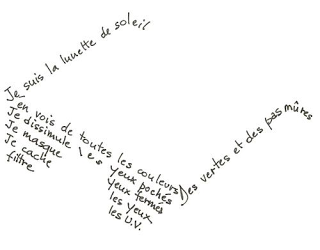 Je suis la lunette de soleil
J'en vois de toutes les couleurs
Des vertes et des pas mûres
Je dissimule les yeux pochés
Je masque yeux fermés
Je cache les yeux
filtre les U.V.